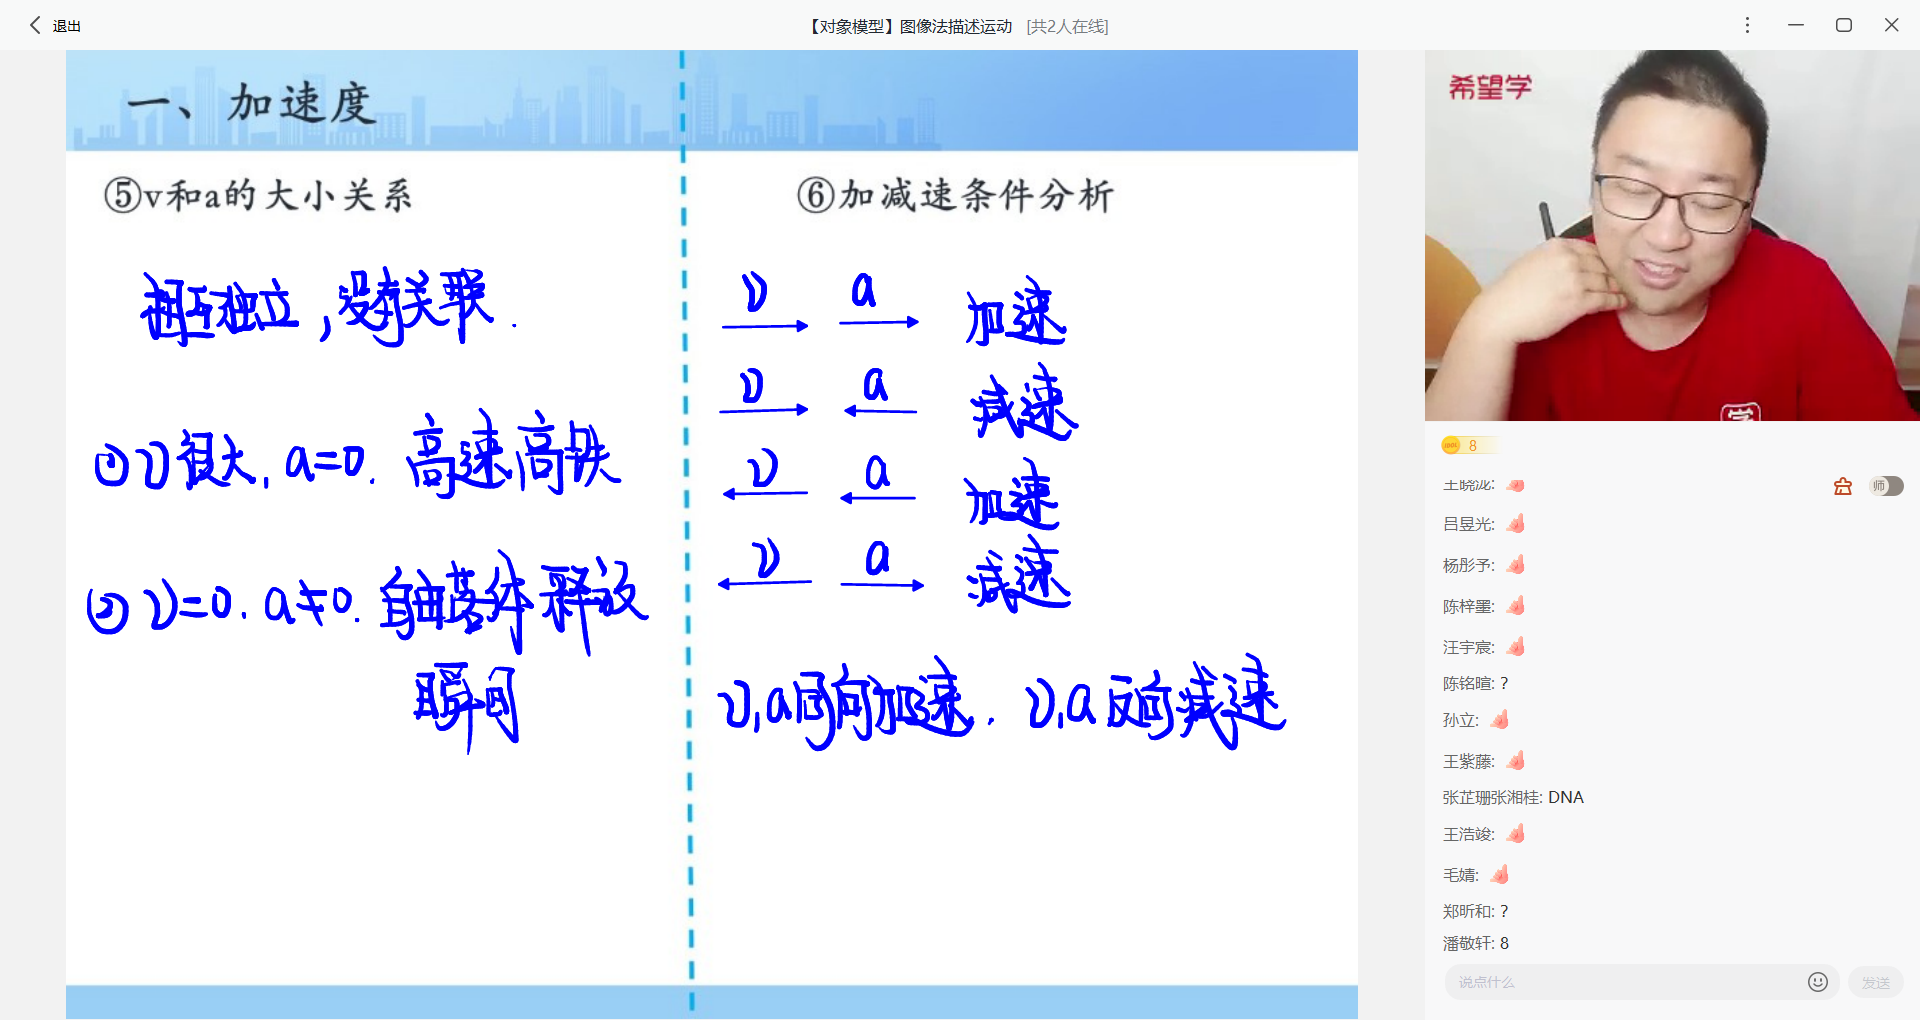 退出
【对象模型】图像法描述运动 [共2人在线]
一、加速度
⑤v和a的大小关系
相互独立，没有关联.
①v很大, a=0. 高速高铁
②v=0. a≠0. 自由落体释放
瞬间
⑥加减速条件分析
v a 加速
v a 减速
v a 加速
v a 减速
v,a同向加速. v,a反向减速
希望学
学
8
王晓泷:
师
吕昱光:
杨彤予:
陈梓墨:
汪宇宸:
陈铭暄: ?
孙立:
王紫藤:
张芷珊张湘桂: DNA
王浩竣:
毛婧:
郑昕和: ?
潘敬轩: 8
说点什么
发送